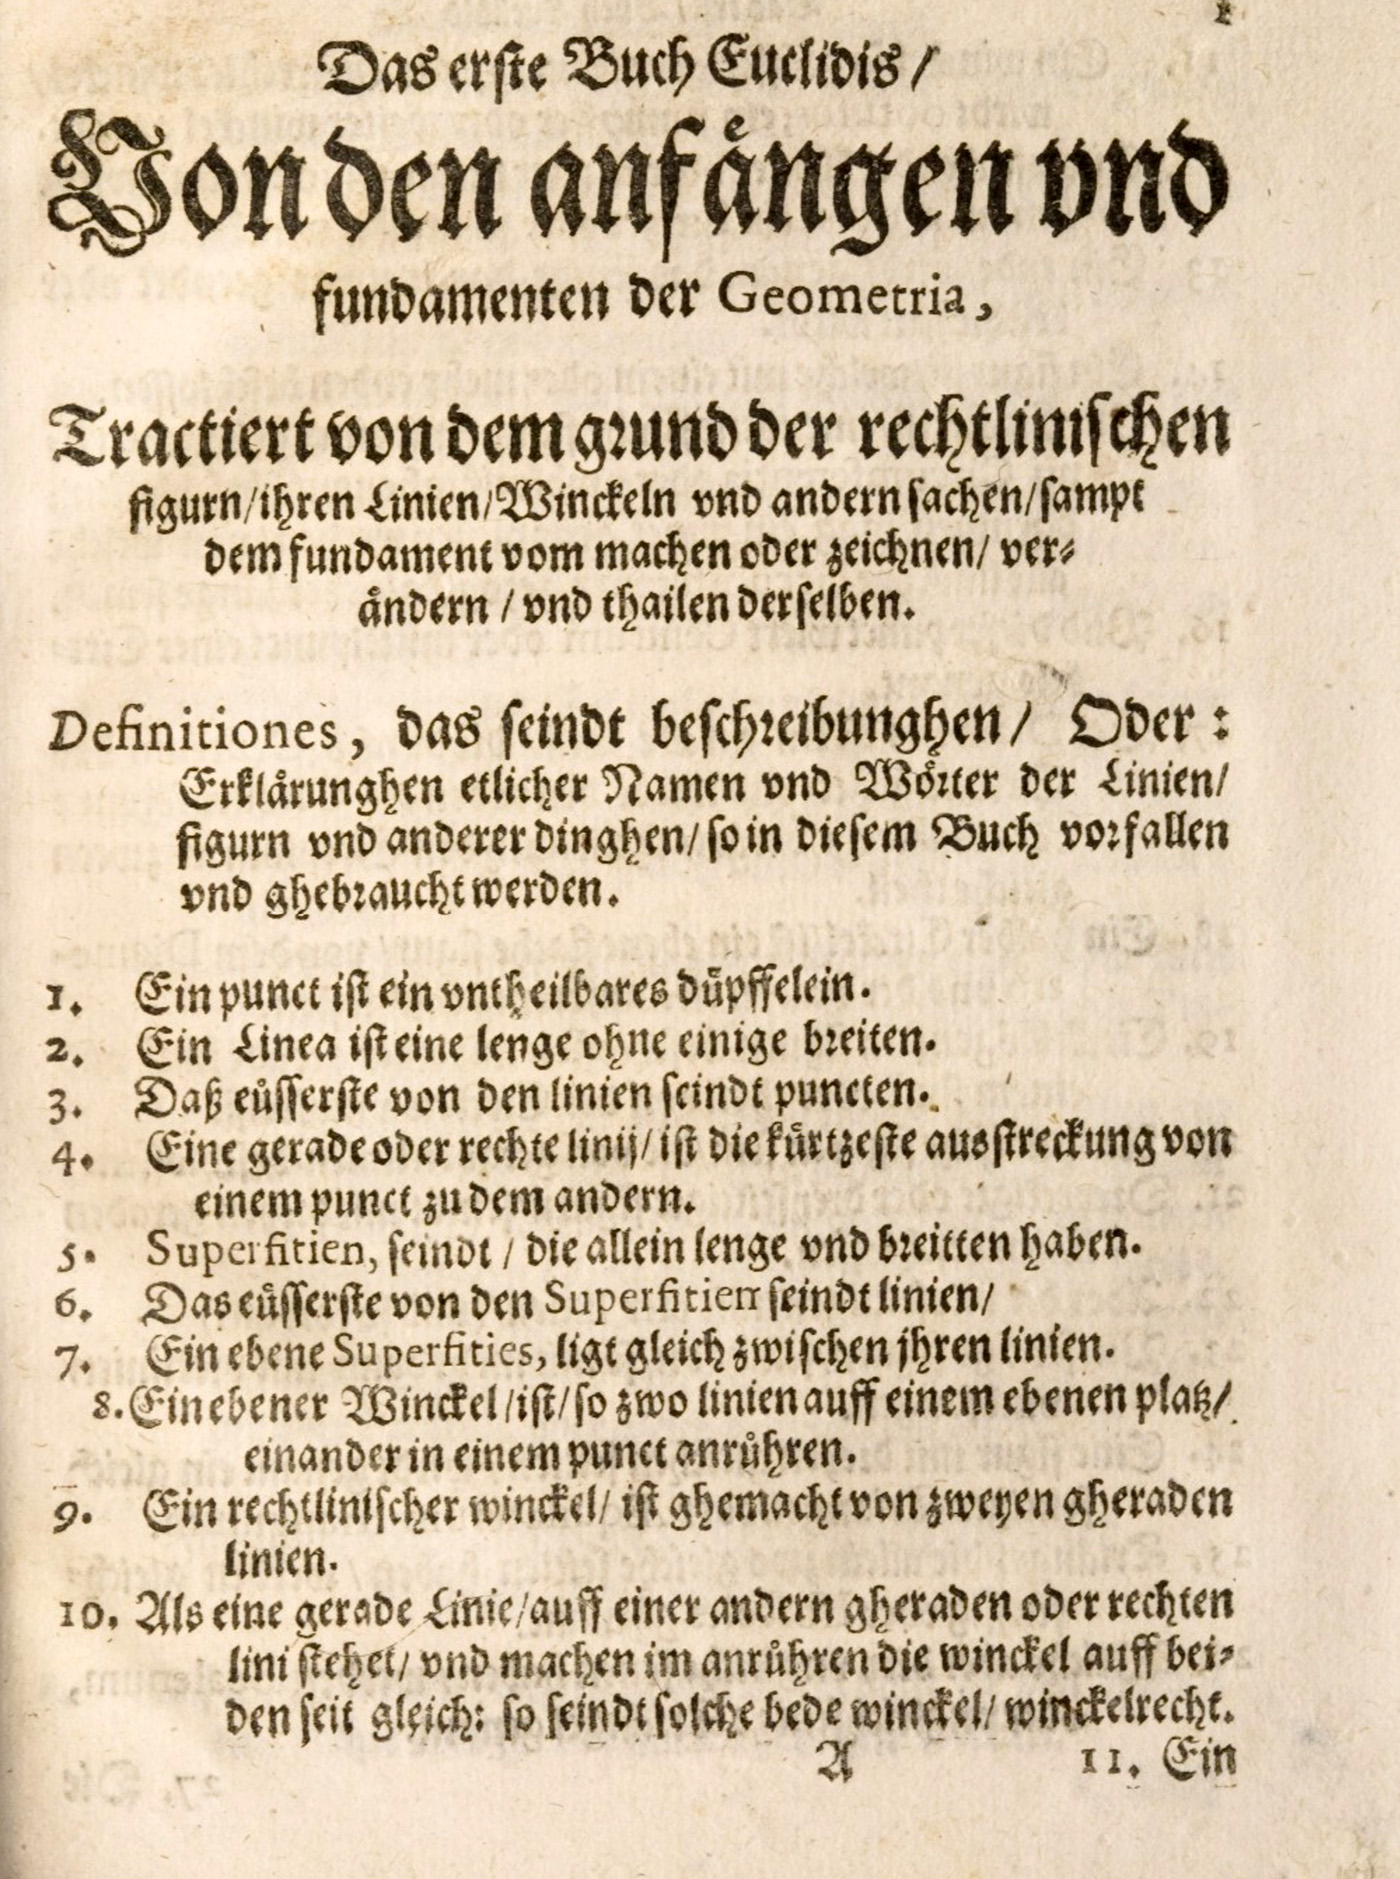 1
Das erste Buch Euclidis /
Von den anfängen vnd
fundamenten der Geometria,
Tractiert von dem grund der rechtlinischen
figurn/ ihren Linien/ Winckeln vnd andern sachen/ sampt
dem fundament vom machen oder zeichnen/ ver-
ändern / vnd thailen derselben.
Definitiones, das seindt beschreibunghen/ Oder:
Erklärunghen etlicher Namen vnd Wörter der Linien/
figurn vnd anderer dinghen/ so in diesem Buch vorfallen
vnd ghebraucht werden.
1. Ein punct ist ein vntheilbares düpffelein.
2. Ein Linea ist eine lenge ohne einige breiten.
3. Daß eüsserste von den linien seindt puncten.
4. Eine gerade oder rechte linij/ ist die kürtzeste ausstreckung von
einem punct zu dem andern.
5. Superfitien, seindt / die allein lenge vnd breitten haben.
6. Das eüsserste von den Superfitien seindt linien/
7. Ein ebene Superfities, ligt gleich zwischen jhren linien.
8. Ein ebener Winckel/ ist/ so zwo linien auff einem ebenen platz/
einander in einem punct anrühren.
9. Ein rechtlinischer winckel/ ist ghemacht von zweyen gheraden
linien.
10. Als eine gerade Linie/ auff einer andern gheraden oder rechten
lini stehet/ vnd machen im anrühren die winckel auff bei-
den seit gleich: so seindt solche bede winckel/ winckelrecht.
A 11. Ein